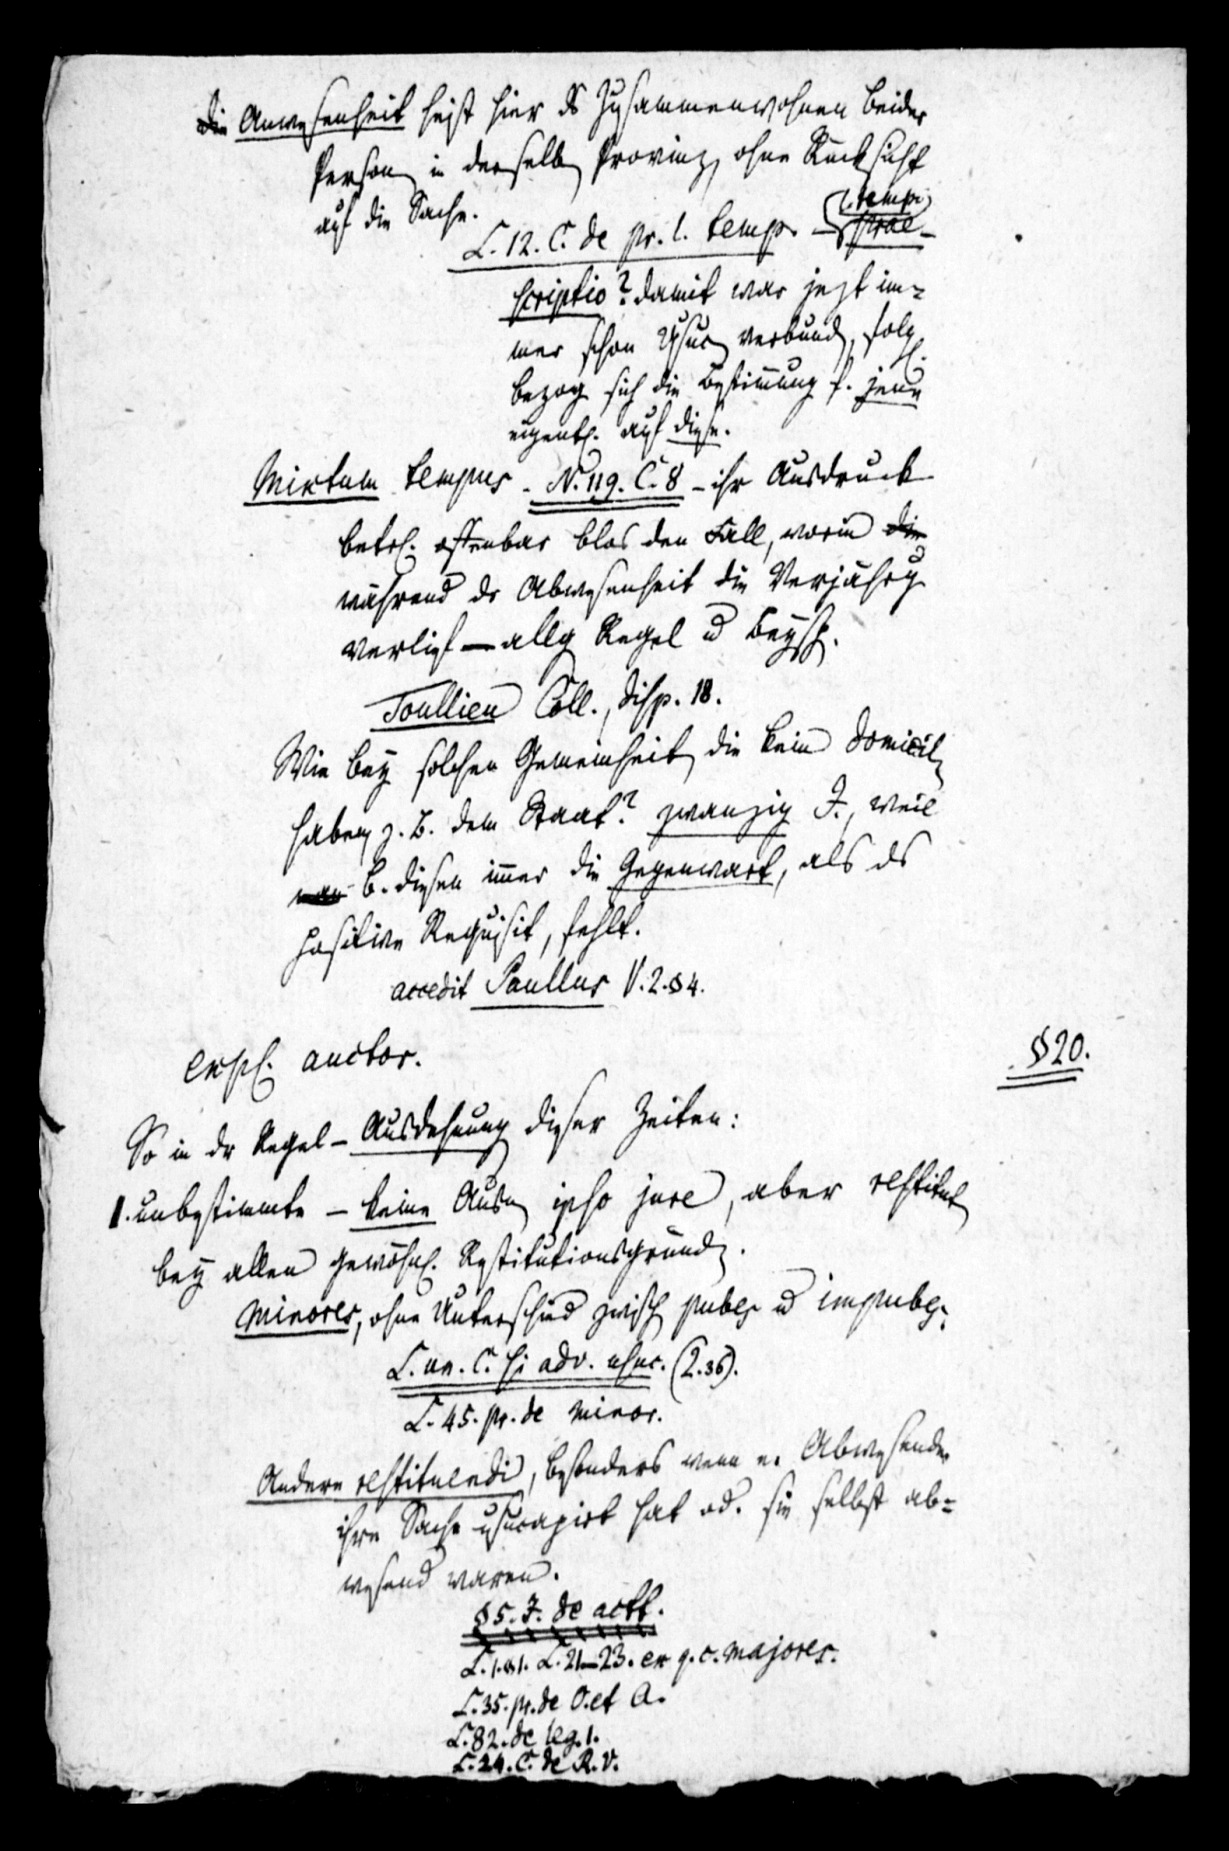 die Anwesenheit heist hier ds Zusammenwohnen beider
Person in derselb Provinz, ohne Rücksicht
auf die Sache.
L. 12. C. de pr. l. temp. – (l. temp.
prae-
scriptio? damit war jezt im=
mer schon Usuc verbund, folgl.
bezog sich die Bestimmung f. jene
eigentl. auf diese.
Mixtum tempus – N. 119. C. 8 – ihr Ausdruck
betrf. offenbar blos den Fall, worin die
während dr Abwesenheit die Verjährg
verlief – allg Regel u Beysp.
Toullieu Coll., disp. 18.
Wie bey solchen Gemeinheit, die kein Domicil
haben z. B. dem Staat? zwanzig J., weil
man b. diesen immer die Gegenwart, als ds
positive Requisit, fehlt.
accedit Paullus V. 2. § 4.
§ 20.
expl. auctor.
So in dr Regel – Ausdehnung dieser Zeiten:
1. unbestimmte – keine Ausn ipso jure, aber restitut
bey allen gewöhnl. Restitutionsgründ.
Minores, ohne Unterschied zwisch pubes u impubes.
L. un. C. si adv. usuc. (2. 36).
L. 45. pr. de minor.
Andere restituendi, besonders wenn e. Abwesender
ihre Sache usucapirt hat od. sie selbst ab=
wesend waren.
§ 5. J. de actt.
L. 1. § 1. L. 21–23. ex q. c. majores.
L. 35. pr. de O. et A.
L. 82. de leg. 1.
L. 24. C. de R. V.